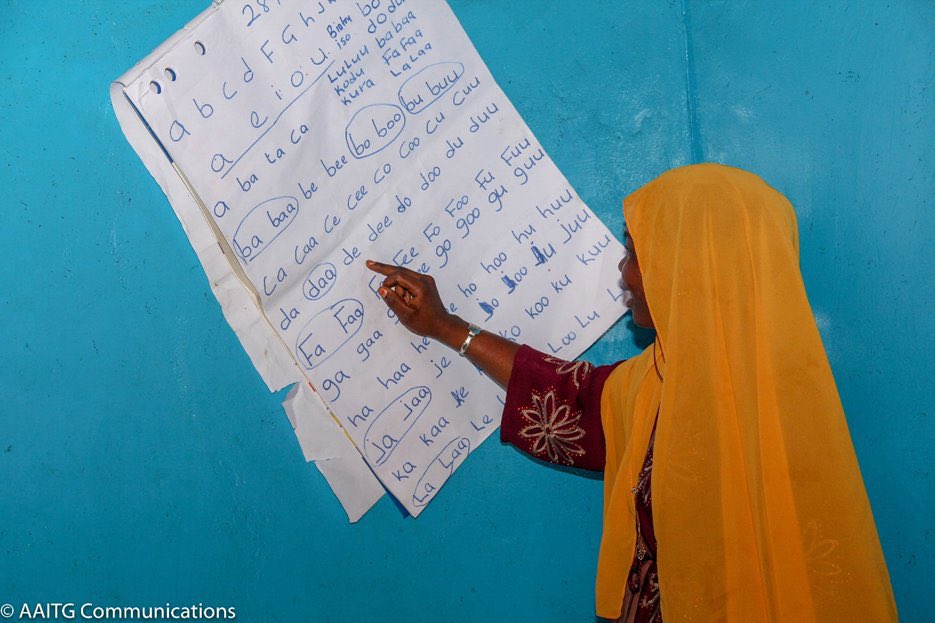 a b c d F G h J
a e i o. u.
Biatu
iso
Luluu babaa
Kodu FaFaa
Kura LaLaa
a ba ta ca
ba baa be bee bo boo bu buu
ca caa ce cee co coo cu cuu
da daa de dee do doo du duu
Fa Faa Fee Fo Foo Fu Fuu
ga gaa go goo gu guu
ha haa he ho hoo hu huu
Ja Jaa Je Jo Joo Ju Juu
Ka Kaa Ke Ko Koo Ku Kuu
La Laa Le Loo Lu
© AAITG Communications